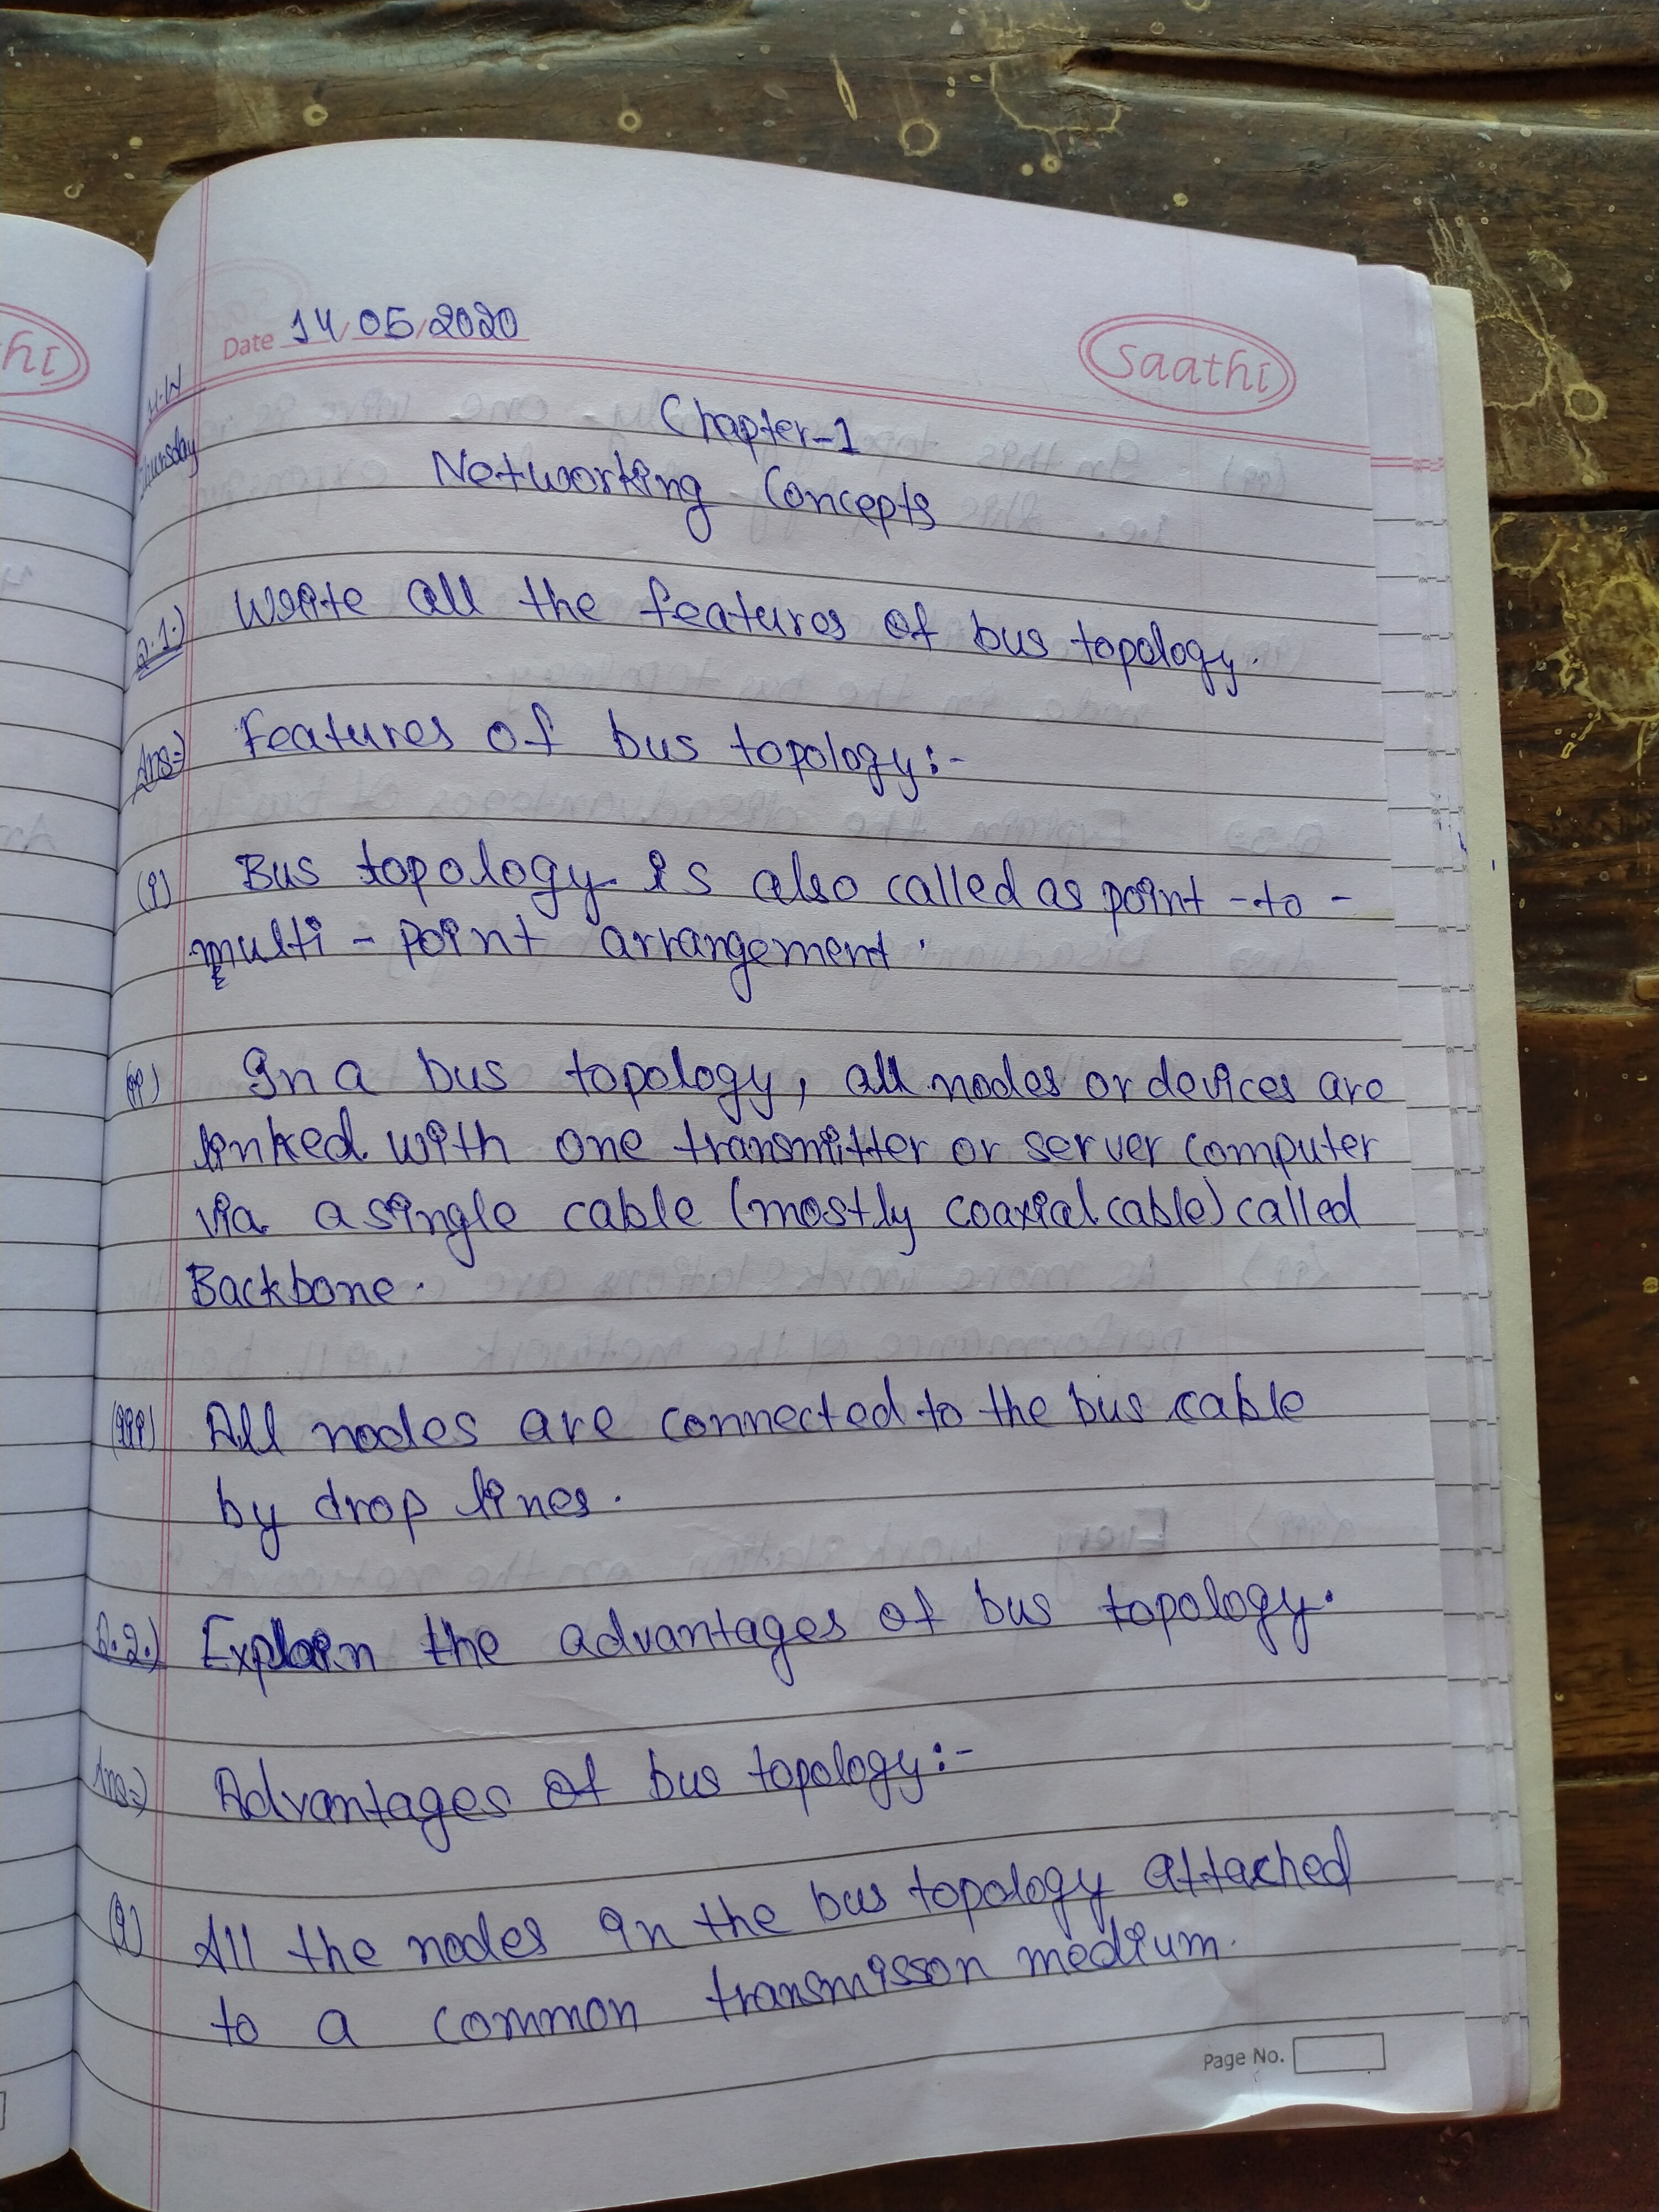 Date 14/05/2020
Saathi
H.W
Thursday
Chapter-1
Networking Concepts
Q.1.) Write all the features of bus topology.
Ans→) Features of bus topology:-
(i) Bus topology is also called as point-to-
multi-point arrangement.
(ii) In a bus topology, all nodes or devices are
linked with one transmitter or server computer
via a single cable (mostly coaxial cable) called
Backbone.
(iii) All nodes are connected to the bus cable
by drop lines.
Q.2.) Explain the advantages of bus topology.
Ans→) Advantages of bus topology:-
(i) All the nodes in the bus topology attached
to a common transmisson medium.
Page No.